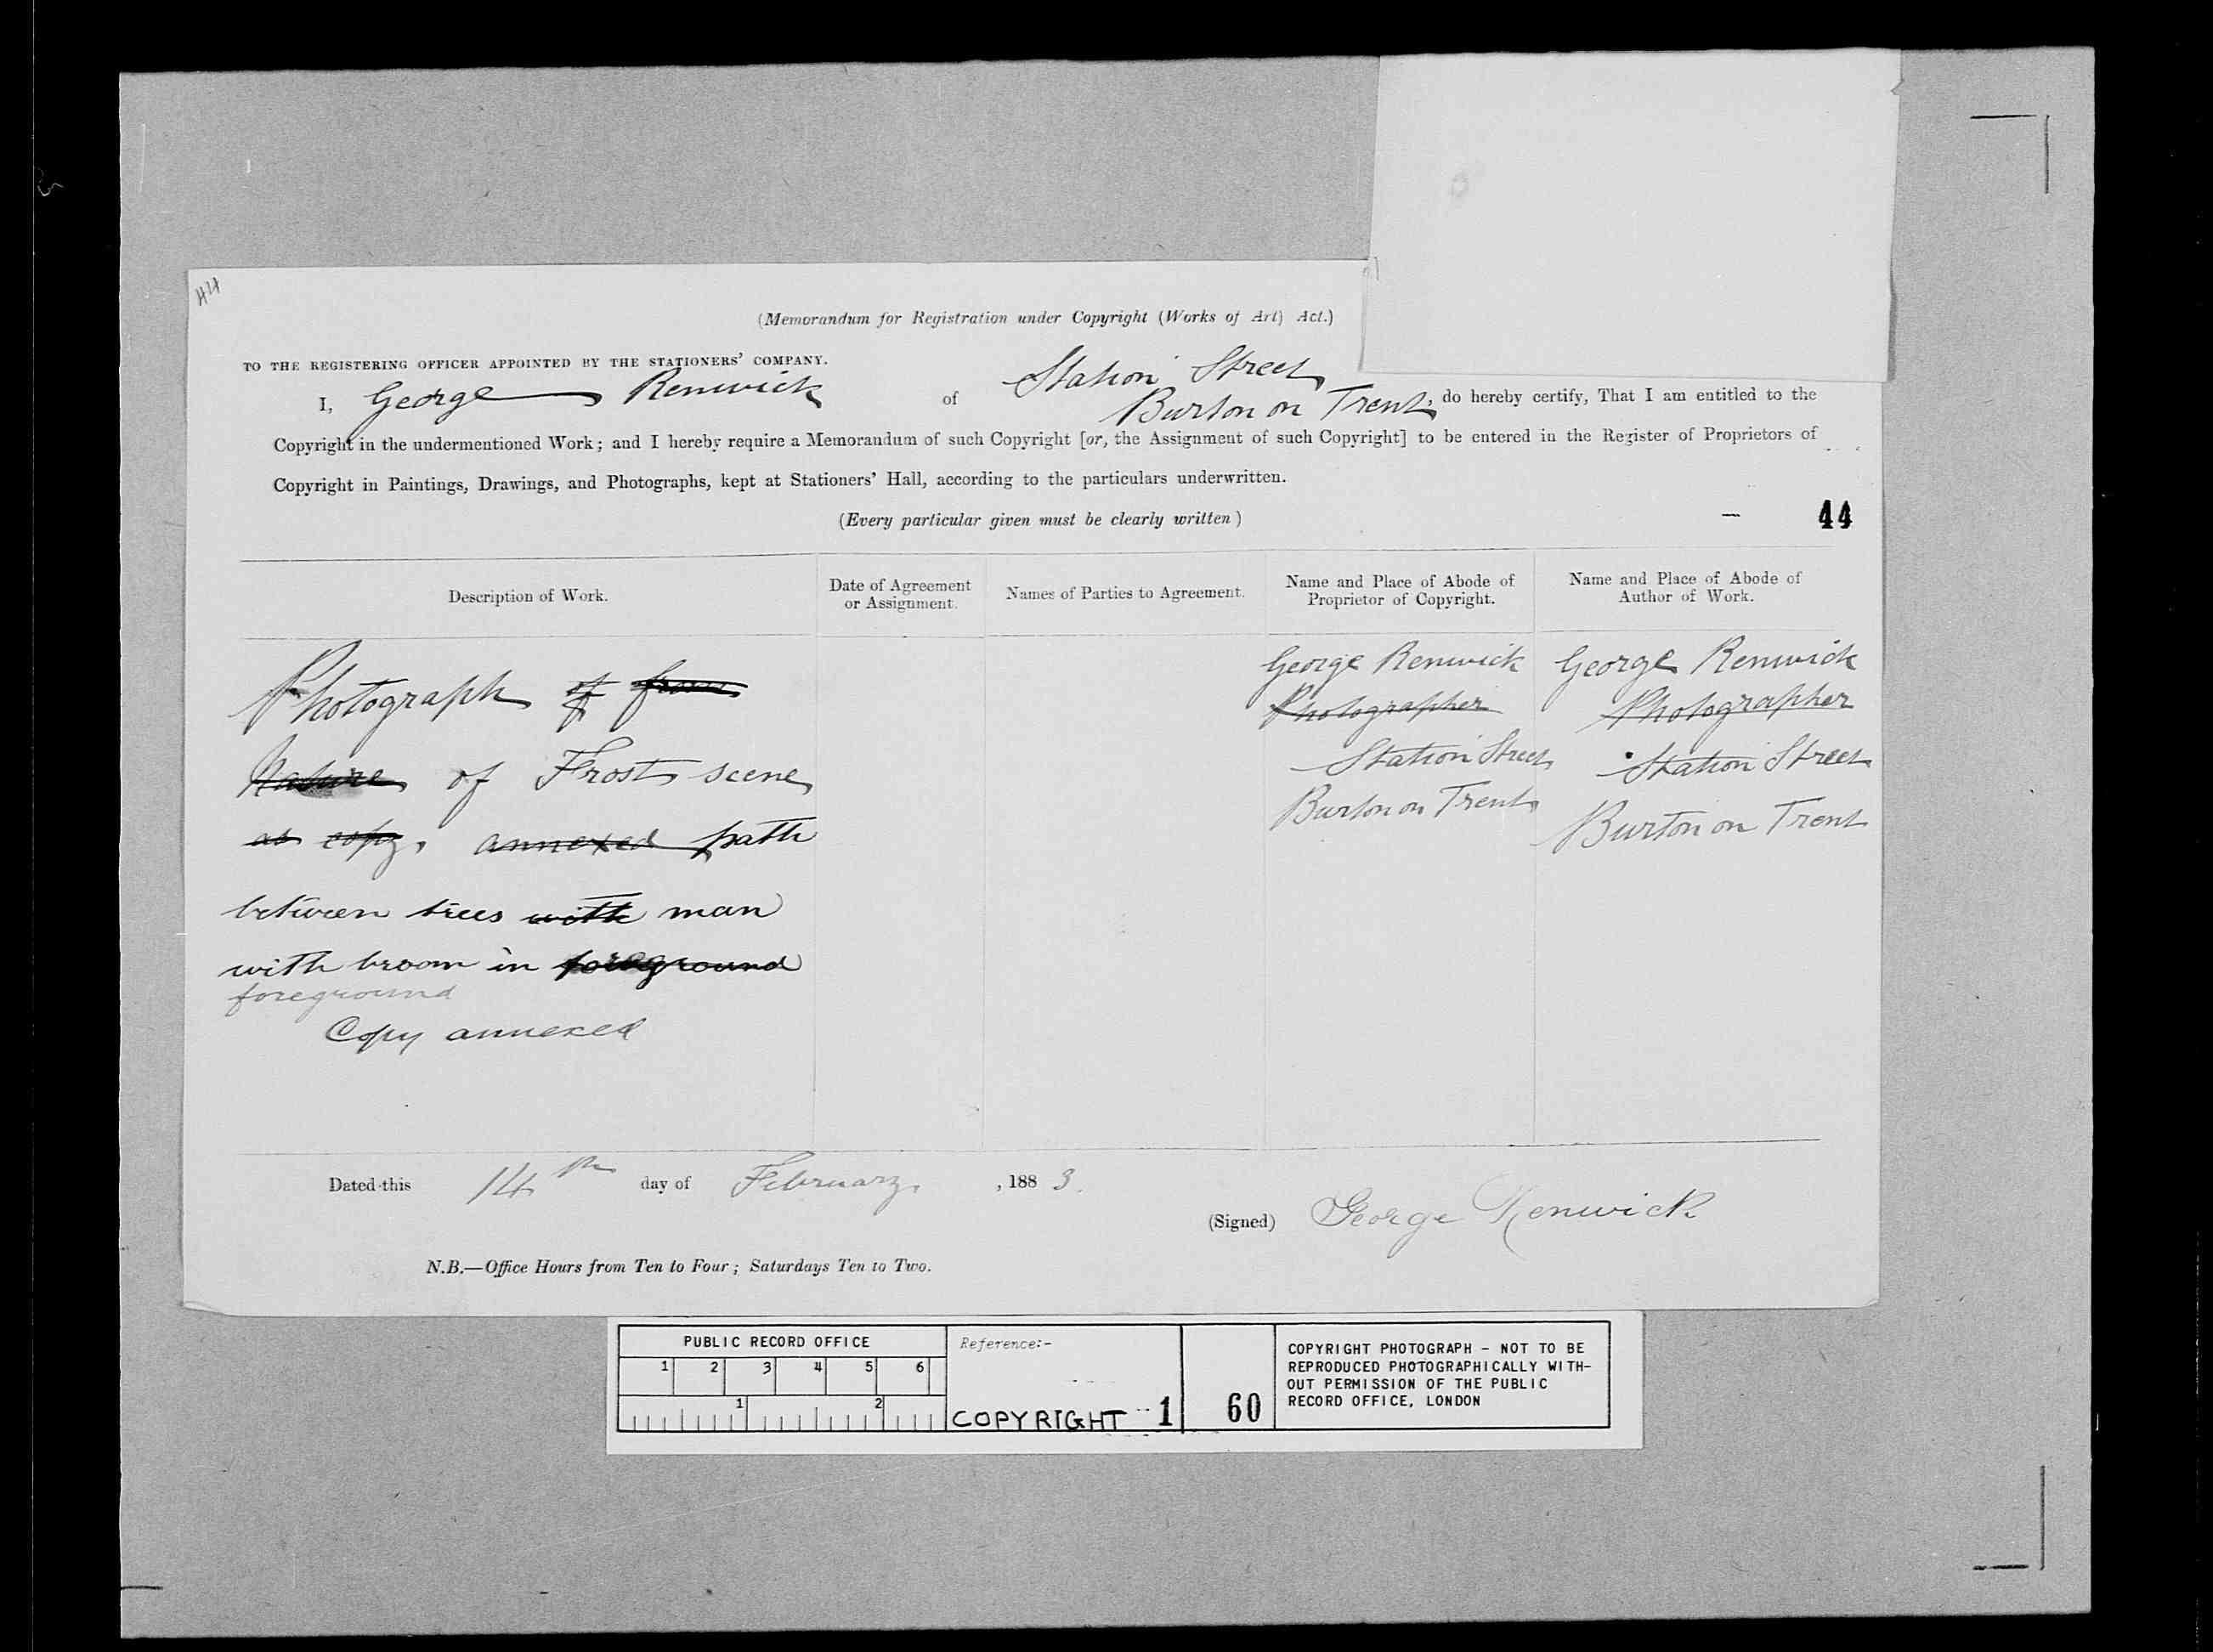 44
(Memorandum for Registration under Copyright (Works of Art) Act.)
TO THE REGISTERING OFFICER APPOINTED BY THE STATIONERS' COMPANY.
I, George Renwick of Station Street
Burton on Trent, do hereby certify, That I am entitled to the
Copyright in the undermentioned Work; and I hereby require a Memorandum of such Copyright [or, the Assignment of such Copyright] to be entered in the Register of Proprietors of
Copyright in Paintings, Drawings, and Photographs, kept at Stationers' Hall, according to the particulars underwritten.
(Every particular given must be clearly written)
44
Description of Work.
Date of Agreement
or Assignment.
Names of Parties to Agreement.
Name and Place of Abode of
Proprietor of Copyright.
Name and Place of Abode of
Author of Work.
Photograph of from
Nature of Frost scene
as copy. annexed path
between trees with man
with broom in foreground
foreground
Copy annexed
George Renwick
Photographer
Station Street
Burton on Trent
George Renwick
Photographer
Station Street
Burton on Trent
Dated this 14th day of February, 1883.
(Signed) George Renwick
N.B.—Office Hours from Ten to Four; Saturdays Ten to Two.
PUBLIC RECORD OFFICE
1 2 3 4 5 6
1 2
Reference:-
COPYRIGHT 1
60
COPYRIGHT PHOTOGRAPH - NOT TO BE
REPRODUCED PHOTOGRAPHICALLY WITH-
OUT PERMISSION OF THE PUBLIC
RECORD OFFICE, LONDON